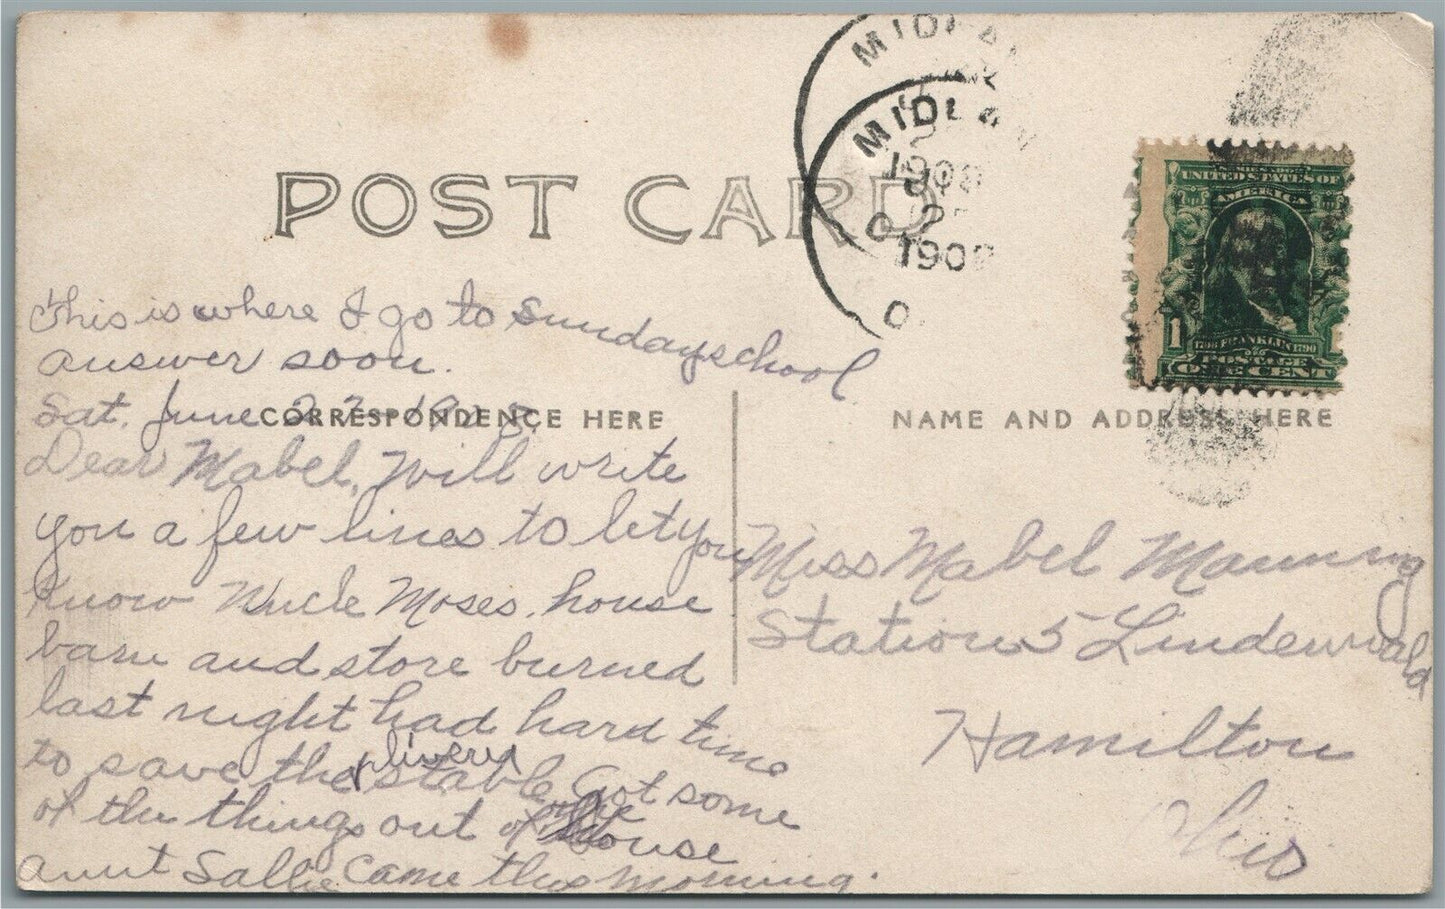 POST CARD
MIDLAN
MIDLAN
1908
2
1908
O.
UNITED STATES OF
AMERICA
1
FRANKLIN 1790
POSTAGE
ONE CENT
this is where I go to Sundayschool
answer soon.
Sat. June 27-1908
CORRESPONDENCE HERE
NAME AND ADDRESS HERE
Dear Mabel, Will write
you a few lines to let you
know Uncle Moses, house
barn and store burned
last night had hard time
to save the livery stable Got some
of the things out of the house
aunt Sallie came this morning.
Miss Mabel Manning
Station 5 Lindenwald
Hamilton
Ohio